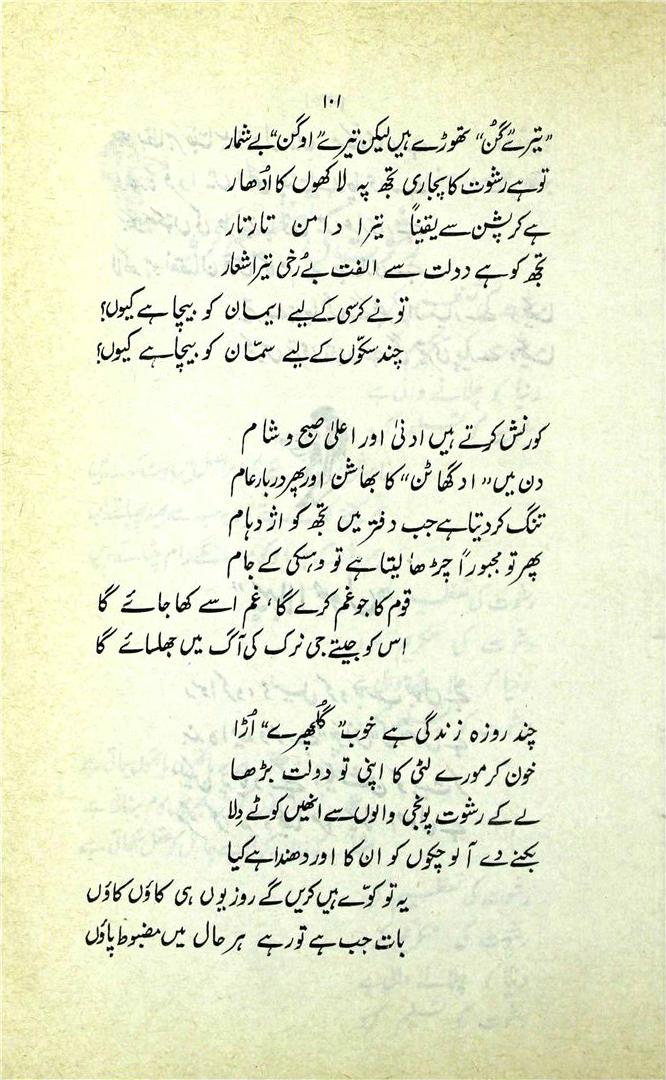 ۱۰۱
”تیرے ”گُن“ تھوڑے ہیں لیکن تیرے ”اوگن“ بے شمار
تو ہے رشوت کا پجاری تجھ پہ لاکھوں کا اُدھار
ہے کرپشن سے یقیناً تیرا دامن تار تار
تجھ کو ہے دولت سے الفت بے رُخی تیرا شعار
تو نے کرسی کے لیے ایمان کو بیچا ہے کیوں؟
چند سکّوں کے لیے سمّان کو بیچا ہے کیوں؟
کورنش کرتے ہیں ادنیٰ اور اعلیٰ صبح و شام
دن میں ”ادگھاٹن“ کا بھاشن اور پھر دربارِ عام
تنگ کر دیتا ہے جب دفتر میں تجھ کو اژدہام
پھر تو مجبوراً چڑھا لیتا ہے تو وہسکی کے جام
قوم کا جو غم کرے گا، غم اسے کھا جائے گا
اس کو جیتے جی نرک کی آگ میں جھلسائے گا
چند روزہ زندگی ہے خوب ”گُلچھرے“ اُڑا
خون کر مورے لٹی کا اپنی تو دولت بڑھا
لے کے رشوت پونجی والوں سے انھیں کوٹے دِلا
بکنے دے آلو چکوں کو ان کا اور دھندا ہے کیا
یہ تو کوّے ہیں کریں گے روز یوں ہی کاؤں کاؤں
بات جب ہے تو رہے ہر حال میں مضبوط پاؤں